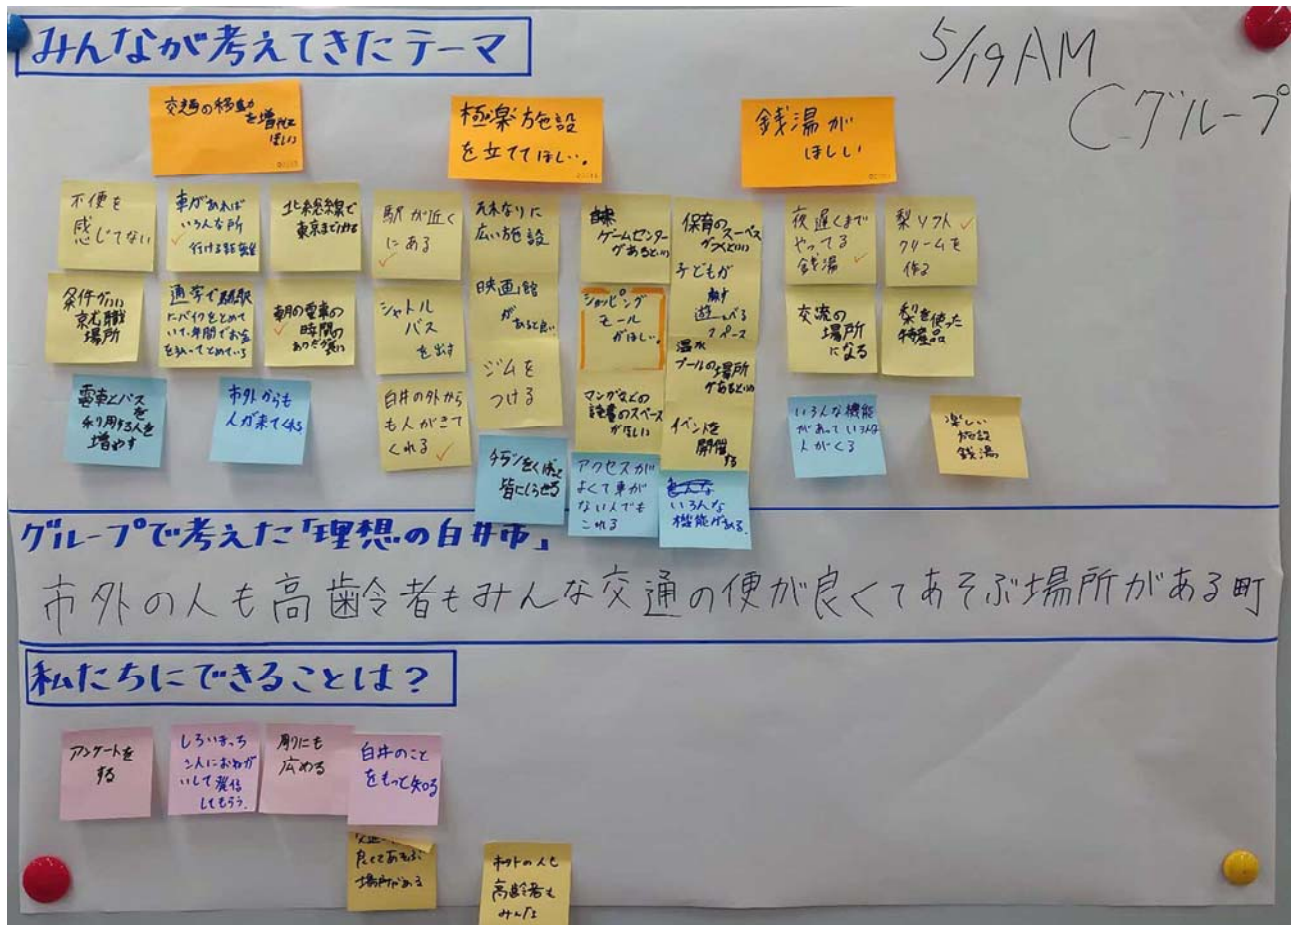 みんなが考えてきたテーマ
5/19 AM
Cグループ
交通の移動
を増やして
ほしい
極楽施設
を立ててほしい。
銭湯が
ほしい
不便を
感じてない
車があれば
いろんな所
行ける
北総線で
東京まで行ける
駅が近く
にある
広い施設
ゲームセンター
があるといい
保育の
スペース
がつくといい
夜遅くまで
やってる
銭湯
梨ソフト
クリームを
作る
条件がいい
就職
場所
通学で
にバイクをとめて
いて、年間でお金
を払ってとめている
朝の電車の
時間の
シャトル
バス
を出す
映画館
があると良い
ショッピング
モール
がほしい。
子どもが
遊べる
スペース
交流の
場所
になる
梨を使った
特産品
ジムを
つける
温水
プールの場所
があるといい
電車とバス
を
利用する人を
増やす
市外からも
人が来てくれる
白井の外から
も人がきて
くれる
マンガなどの
読書のスペース
がほしい
イベントを
開催
する
いろんな機能
があっていろんな
人がくる
楽しい
施設
銭湯
チラシをくばって
皆にしらせる
アクセスが
よくて車が
ない人でも
これる
いろんな
機能がある。
グループで考えた「理想の白井市」
市外の人も高齢者もみんな交通の便が良くてあそぶ場所がある町
私たちにできることは?
アンケートを
する
しろいまっち
さんにおねが
いして発信
してもらう。
周りにも
広める
白井のこと
をもっと知る
良くてあそぶ
場所がある
市外の人も
高齢者も
みんな